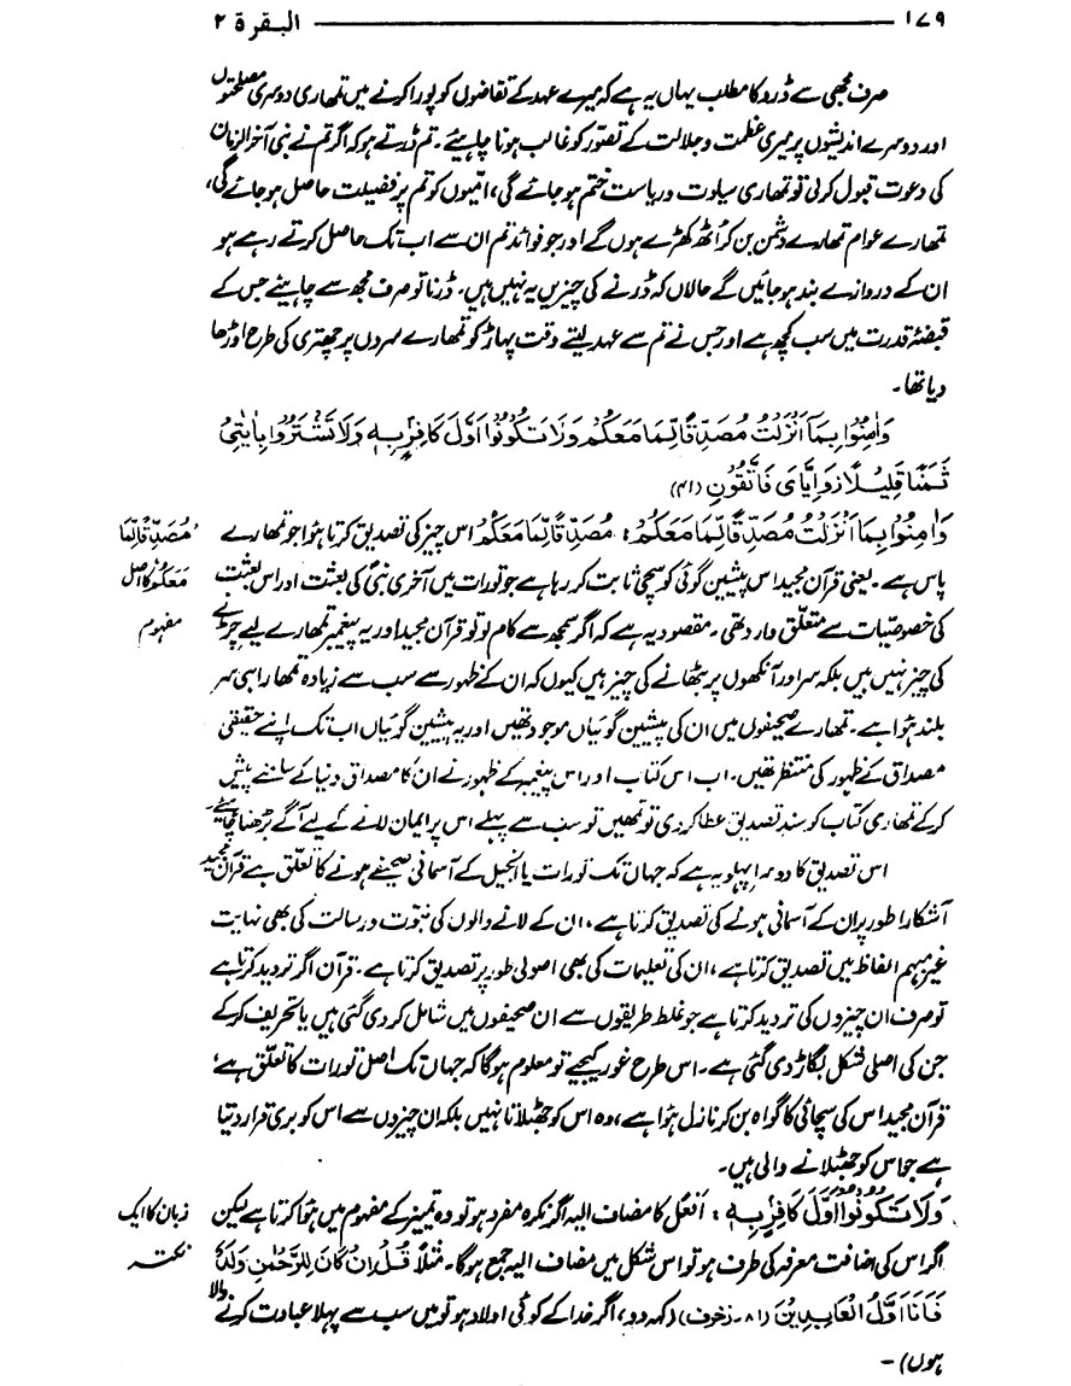 ۱۷۹ ——— البقرة ۲
صرف مجھی سے ڈرو کا مطلب یہاں یہ ہے کہ میرے عہد کے تقاضوں کو پورا کرنے میں تمھاری دوسری مصلحتوں
اور دوسرے اندیشوں پر میری عظمت و جلالت کے تصوّر کو غالب ہونا چاہیئے۔ تم ڈرتے ہو کہ اگر تم نے نبی آخر الزمان
کی دعوت قبول کر لی تو تمھاری سیادت و ریاست ختم ہو جائے گی، امّیوں کو تم پر فضیلت حاصل ہو جائے گی،
تمھارے عوام تمھارے دشمن بن کر اُٹھ کھڑے ہوں گے اور جو فوائد تم ان سے اب تک حاصل کرتے رہے ہو
ان کے دروازے بند ہو جائیں گے حالاں کہ ڈرنے کی چیزیں یہ نہیں ہیں۔ ڈرنا تو صرف مجھ سے چاہیئے جس کے
قبضۂ قدرت میں سب کچھ ہے اور جس نے تم سے عہد لیتے وقت پہاڑ کو تمھارے سروں پر چھتری کی طرح اوڑھا
دیا تھا۔
وَاٰمِنُوْا بِمَآ اَنْزَلْتُ مُصَدِّقًا لِّمَا مَعَكُمْ وَلَا تَكُوْنُوْٓا اَوَّلَ كَافِرٍۭ بِهٖ وَلَا تَشْتَرُوْا بِاٰيٰتِىْ
ثَمَنًا قَلِيْلًا ز وَّاِيَّاىَ فَاتَّقُوْنِ (۴۱)
وَاٰمِنُوْا بِمَا اَنْزَلْتُ مُصَدِّقًا لِّمَا مَعَكُمْ: مُصَدِّقًا لِّمَا مَعَكُمْ اس چیز کی تصدیق کرتا ہوا جو تمھارے
مُصَدِّقًا لِّمَا
پاس ہے۔ یعنی قرآن مجید اس پیشین گوئی کو سچی ثابت کر رہا ہے جو تورات میں آخری نبیؐ کی بعثت اور اس بعثت
مَعَكُمْ کا اصل
کی خصوصیّات سے متعلّق وارد تھی۔ مقصود یہ ہے کہ اگر سمجھ سے کام لو تو قرآن مجید اور یہ پیغمبر تمھارے لیے چِڑنے
مفہوم
کی چیز نہیں ہیں بلکہ سر اور آنکھوں پر بٹھانے کی چیز ہیں کیوں کہ ان کے ظہور سے سب سے زیادہ تمھارا ہی سر
بلند ہوا ہے۔ تمھارے صحیفوں میں ان کی پیشین گوئیاں موجود تھیں اور یہ پیشین گوئیاں اب تک اپنے حقیقی
مصداق کے ظہور کی منتظر تھیں۔ اب اس کتاب اور اس پیغمبر کے ظہور نے ان کا مصداق دنیا کے سامنے پیش
کر کے تمھاری کتاب کو سندِ تصدیق عطا کر دی تو تمھیں تو سب سے پہلے اس پر ایمان لانے کے لیے آگے بڑھنا چاہیئے۔
اس تصدیق کا دوسرا پہلو یہ ہے کہ جہاں تک تورات یا انجیل کے آسمانی صحیفے ہونے کا تعلّق ہے قرآن مجید
آشکارا طور پر ان کے آسمانی ہونے کی تصدیق کرتا ہے، ان کے لانے والوں کی نبوّت و رسالت کی بھی نہایت
غیر مبہم الفاظ میں تصدیق کرتا ہے، ان کی تعلیمات کی بھی اصولی طور پر تصدیق کرتا ہے۔ قرآن اگر تردید کرتا ہے
تو صرف ان چیزوں کی تردید کرتا ہے جو غلط طریقوں سے ان صحیفوں میں شامل کر دی گئی ہیں یا تحریف کر کے
جن کی اصلی شکل بگاڑ دی گئی ہے۔ اس طرح غور کیجیے تو معلوم ہوگا کہ جہاں تک اصل تورات کا تعلّق ہے،
قرآن مجید اس کی سچائی کا گواہ بن کر نازل ہوا ہے، وہ اس کو جھٹلاتا نہیں بلکہ ان چیزوں سے اس کو بری قرار دیتا
ہے جو اس کو جھٹلانے والی ہیں۔
وَلَا تَكُوْنُوْٓا اَوَّلَ كَافِرٍۭ بِهٖ: اَفعل کا مضاف الیہ اگر نکرہ مفرد ہو تو وہ تمییز کے مفہوم میں ہوا کرتا ہے لیکن
زبان کا ایک
اگر اس کی اضافت معرفہ کی طرف ہو تو اس شکل میں مضاف الیہ جمع ہوگا۔ مثلاً قُلْ اِنْ كَانَ لِلرَّحْمٰنِ وَلَدٌ
نکتہ
فَاَنَا اَوَّلُ الْعَابِدِيْنَ (۸۱۔ زخرف) (کہہ دو، اگر خدا کے کوئی اولاد ہو تو میں سب سے پہلا عبادت کرنے والا
ہوں)۔